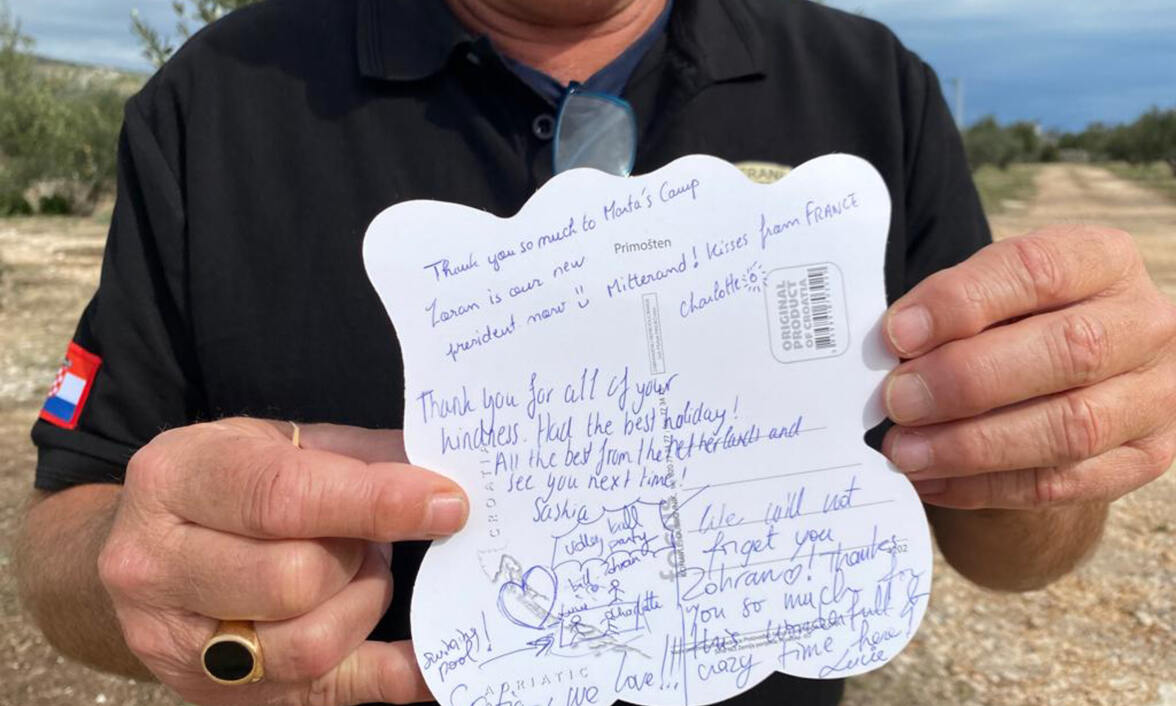 Thank you so much to Marta's Camp
Zoran is our new
president now Mitterand! Kisses from FRANCE
Charlotte
Primošten
ORIGINAL
PRODUCT
OF CROATIA
Thank you for all of your
kindness. Had the best holiday!
All the best from the netherlands and
see you next time!
Saskia
CROATIA
volley ball
party
Lucie
Charlotte
swiming
pool!
ADRIATIC
we love!!!
We will not
forget you
Zohran♡! Thanks
you so much for
this wonderfull &
crazy time here!
Lucie